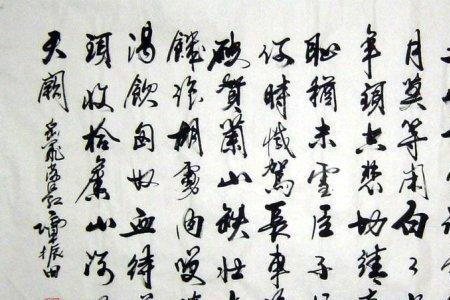 月莫等闲白了
年頭空悲切靖
耻猶未雪臣子
何時滅駕長車
破賀蘭山缺壮
胡虜肉笑
渴飲匈奴血待
頭收拾舊山河
天闕
岳飛滿江紅
振田